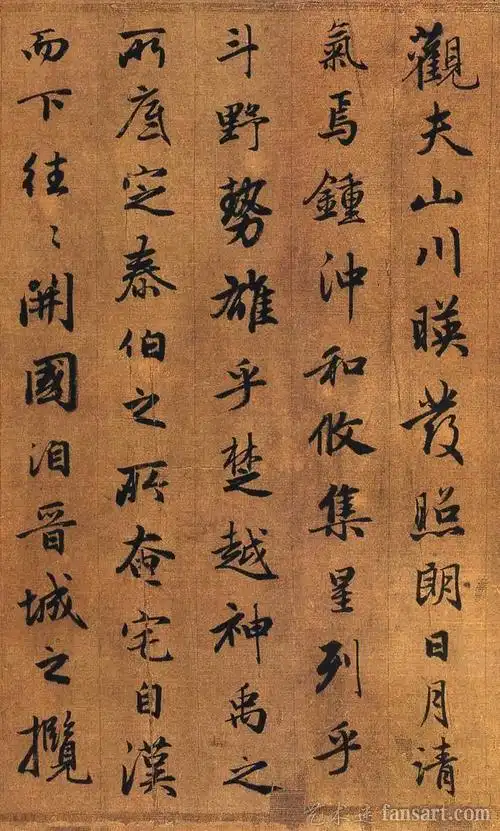 觀夫山川暎發照朗日月清
氣焉鍾沖和攸集星列乎
斗野勢雄乎楚越神禹之
所底定泰伯之所奄宅自漢
而下往〻開國洎晉城之攬
fansart.com